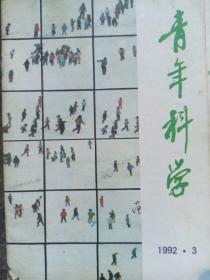 青年科学
1992·3